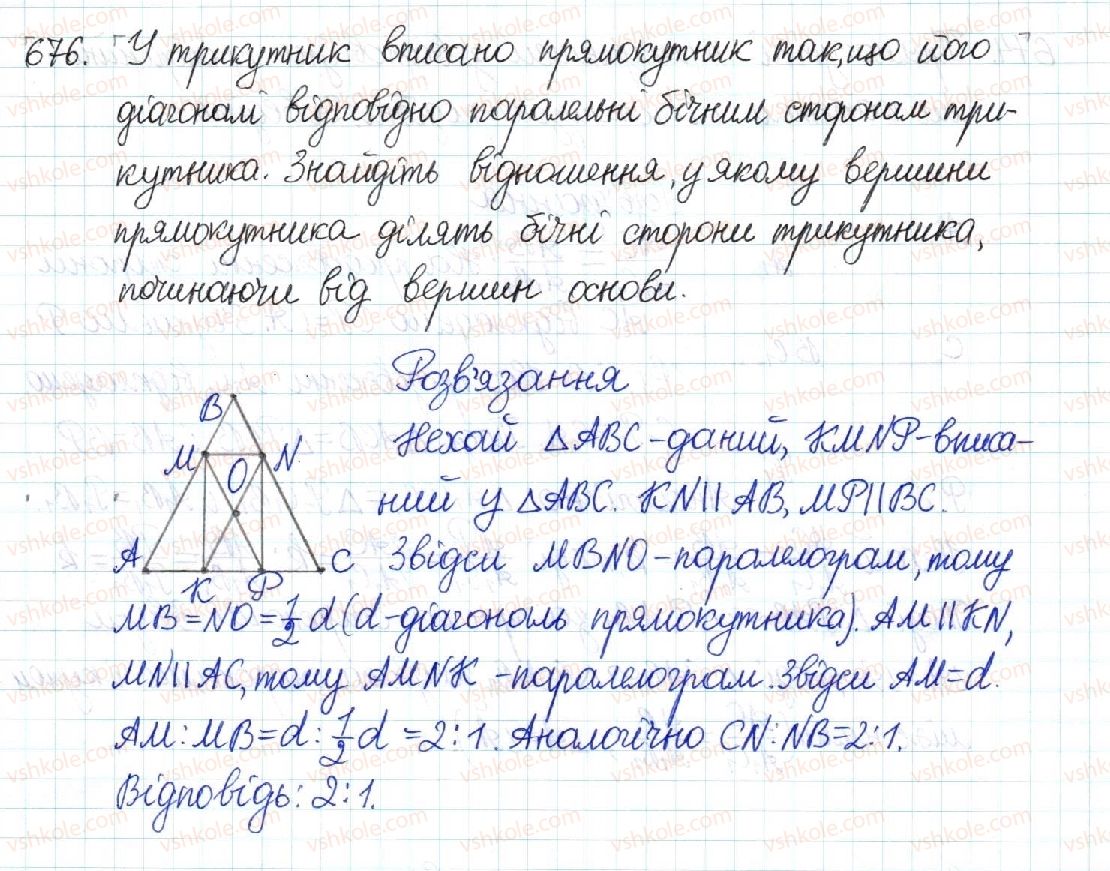 676. У трикутник вписано прямокутник так, що його
діагоналі відповідно паралельні бічним сторонам три-
кутника. Знайдіть відношення, у якому вершини
прямокутника ділять бічні сторони трикутника,
починаючи від вершин основи.
Розв'язання
B
M O N
A K P C
Нехай △ABC - даний, KMNP - вписа-
ний у △ABC. KN || AB, MP || BC.
Звідси MBNO - паралелограм, тому
MB = NO = 1/2 d (d - діагональ прямокутника). AM || KN,
MN || AC, тому AMNK - паралелограм. Звідси AM = d.
AM : MB = d : 1/2 d = 2 : 1. Аналогічно CN : NB = 2 : 1.
Відповідь: 2 : 1.